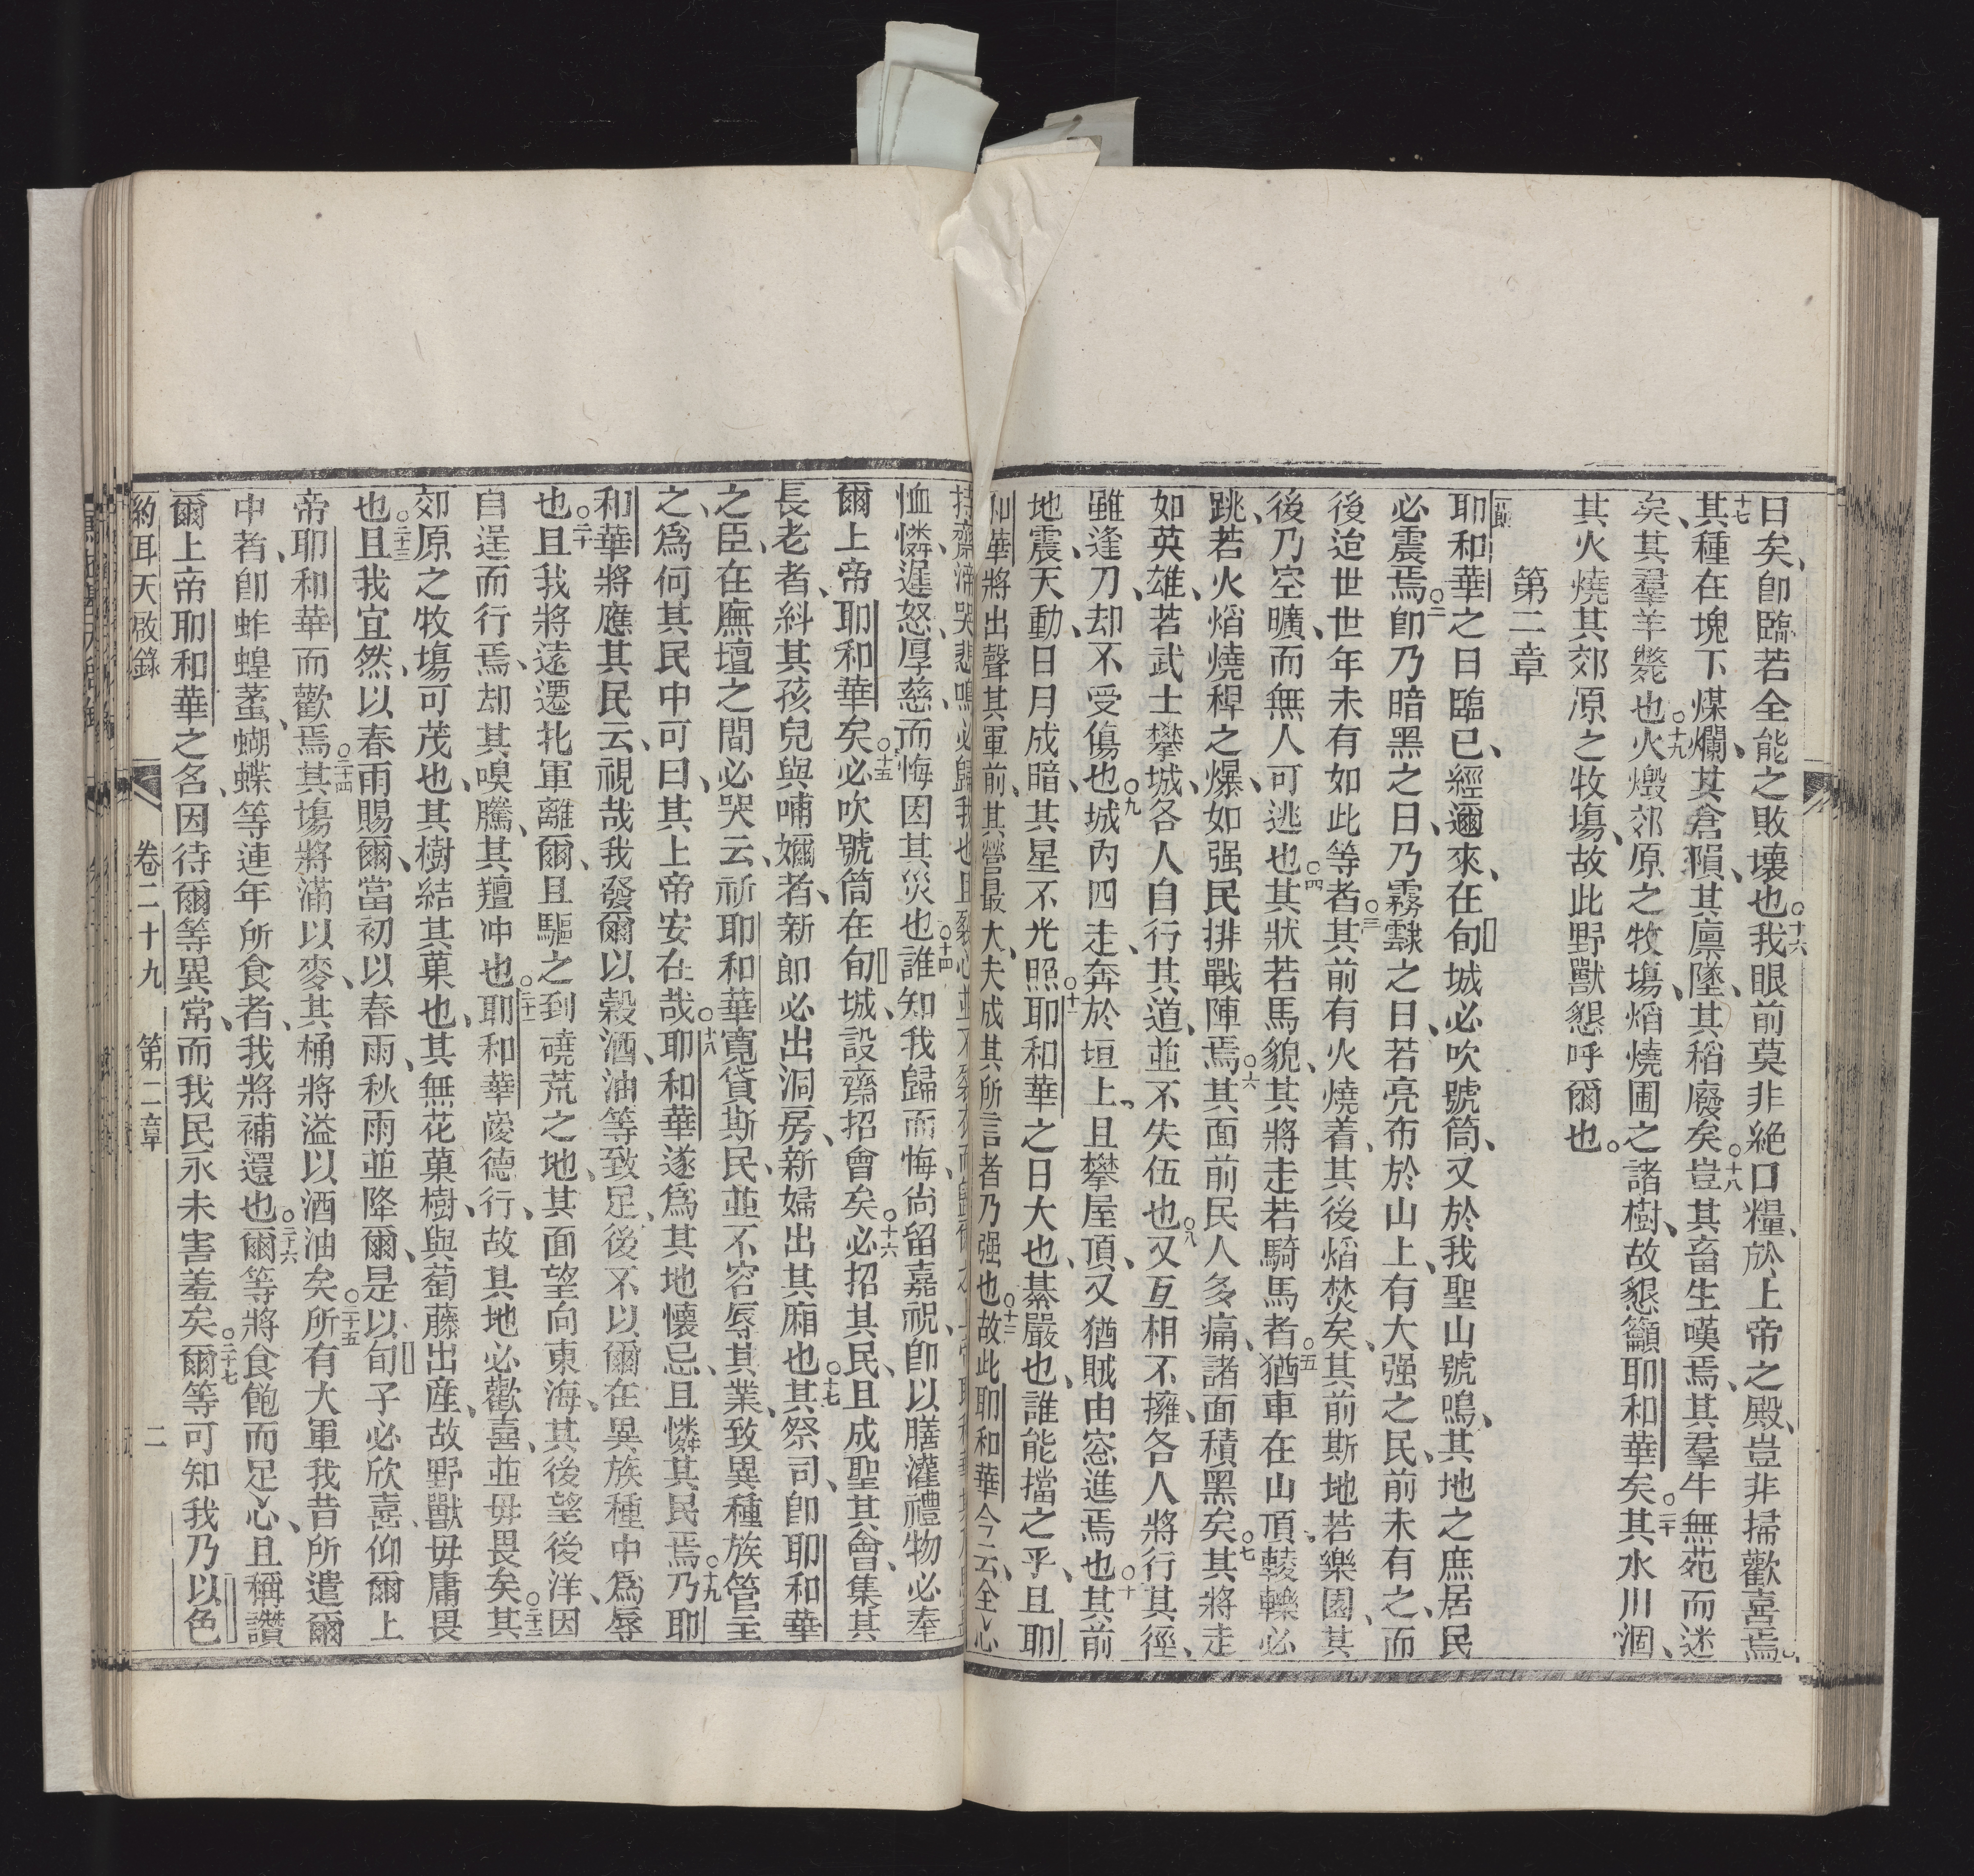 日矣、卽臨若全能之敗壞也○十六我眼前莫非絕口糧、於上帝之殿、豈非掃歡喜焉○
十七其種在塊下煤爛、其倉隕、其廩墜、其稻廢矣○十八豈其畜生嘆焉、其羣牛無苑而迷
矣、其羣羊斃也○十九火燬郊原之牧場、熖燒圃之諸樹、故懇籲耶和華矣○二十其水川涸、
其火燒其郊原之牧場、故此野獸懇呼爾也。
第二章
耶和華之日臨已、經邇來、在旬城必吹號筒、又於我聖山號鳴、其地之庶居民
必震焉○二卽乃暗黑之日、乃霧霴之日、若亮布於山上、有大强之民、前未有之、而
後迨世世年未有如此等者○三其前有火燒着、其後熖焚矣、其前斯地若樂園、其
後乃空曠、而無人可逃也○四其狀若馬貌、其將走若騎馬者○五猶車在山頂輘轢必
跳、若火熖燒稈之爆、如强民排戰陣焉○六其面前民人多痛、諸面積黑矣○七其將走
如英雄、若武士攀城、各人自行其道、並不失伍也○八又互相不擁、各人將行其徑、
雖逢刀却不受傷也○九城內四走、奔於垣上、且攀屋頂、又猶賊由窓進焉也○十其前
地震、天動、日月成暗、其星不光照○十一耶和華之日大也、綦嚴也、誰能擋之乎、且耶
和華將出聲其軍前、其營最大、夫成其所言者乃强也○十二故此耶和華今云、全心
持齋涕哭悲鳴、必歸我也○十三且裂心並不裂衣而歸爾之上帝耶和華
恤憐、遲怒、厚慈、而悔因其災也○十四誰知我歸而悔、尚留嘉祝、卽以膳灌禮物必奉
爾上帝耶和華矣○十五必吹號筒在旬城、設齋招會矣○十六必招其民、且成聖其會、集其
長老者、糾其孩兒與哺嬭者、新郎必出洞房、新婦出其廂也○十七其祭司、卽耶和華
之臣、在廡壇之間必哭云、祈耶和華寬貸斯民、並不容辱其業、致異種族管主
之、爲何其民中可曰、其上帝安在哉○十八耶和華遂爲其地懷忌、且憐其民焉○十九乃耶
和華將應其民云、視哉我發爾以穀、酒、油等致足、後不以爾在異族種中爲辱
也○二十且我將遠遷北軍離爾、且驅之到磽荒之地、其面望向東海、其後望後洋、因
自逞而行焉、却其嗅騰、其羶冲也○二十一耶和華薆德行、故其地必歡喜、並毋畏矣○二十二其
郊原之牧場可茂也、其樹結其菓也、其無花菓樹、與萄藤出産、故野獸毋庸畏
也○二十三且我宜然、以春雨賜爾、當初以春雨、秋雨並降爾、是以旬子必欣喜、仰爾上
帝耶和華而歡焉○二十四其場將滿以麥、其桶將溢以酒油矣○二十五所有大軍我昔所遣爾
中者、卽蚱蝗、蝥、蝴蝶等連年所食者、我將補還也○二十六爾等將食飽而足心、且稱讚
爾上帝耶和華之名、因待爾等異常、而我民永未害羞矣○二十七爾等可知我乃以色
約耳天啟錄 卷二十九 第二章 二